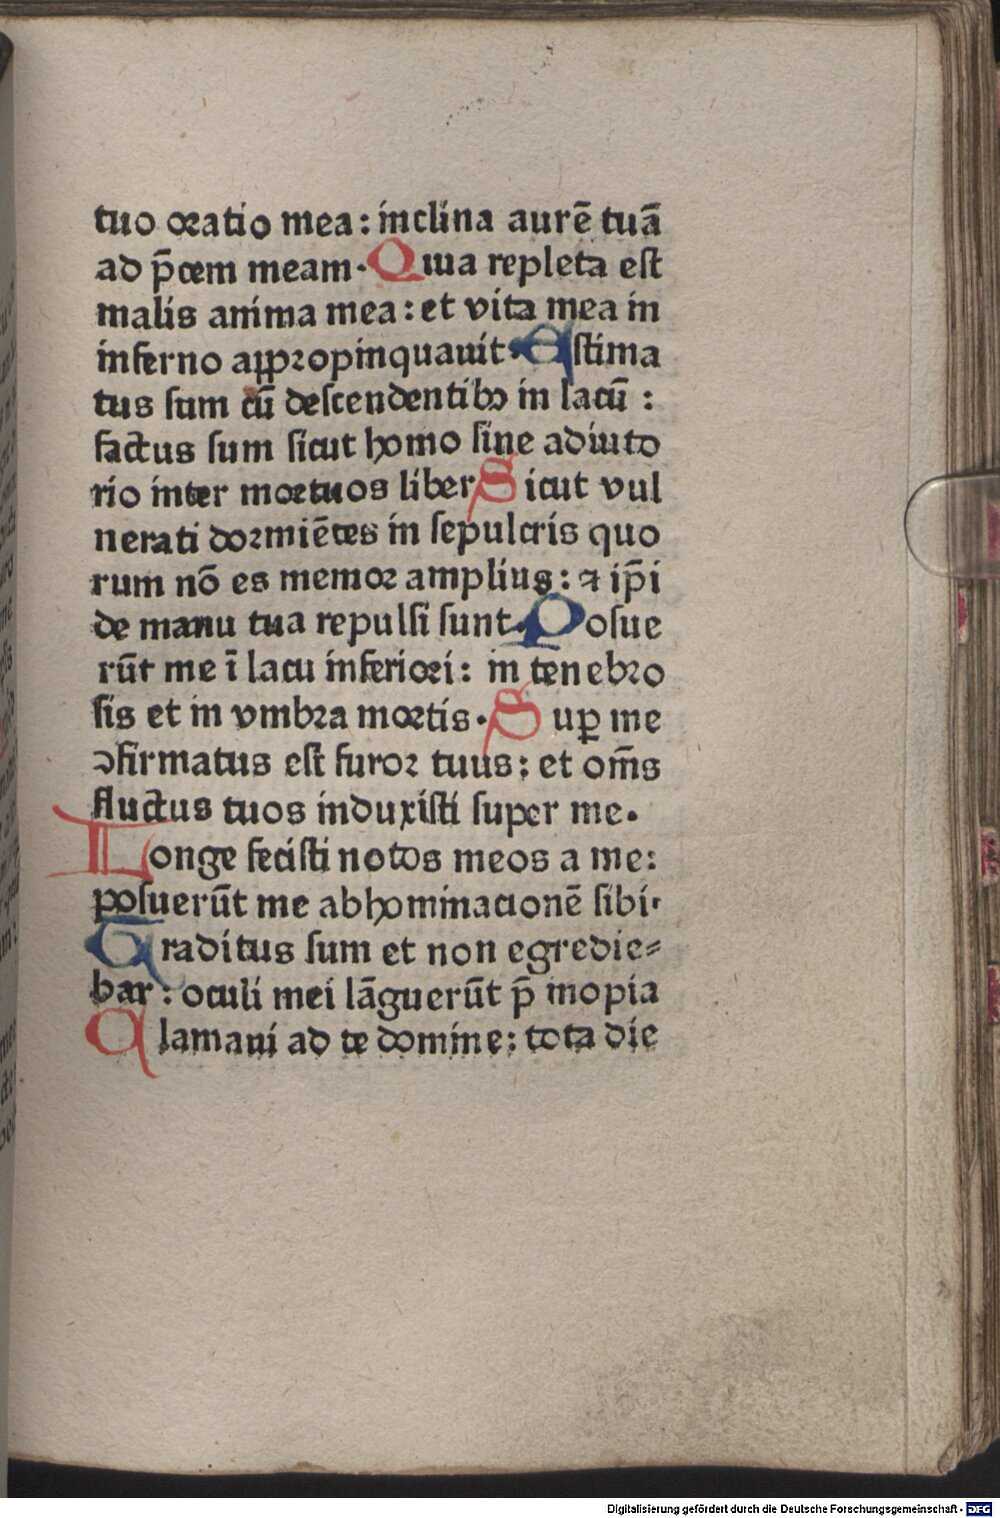 tuo oratio mea: inclina aurē tuā
ad p̄cem meam. Quia repleta est
malis anima mea: et vita mea in
inferno appropinquauit. Estima
tus sum cū descendentibꝫ in lacū:
factus sum sicut homo sine adiuto
rio inter mortuos liber Sicut vul
nerati dormiētes in sepulcris quo
rum nō es memor amplius: ⁊ ip̄i
de manu tua repulsi sunt. Posue
rūt me ī lacu inferiori: in tenebro
sis et in vmbra mortis. Suꝑ me
ꝯfirmatus est furor tuus: et om̄s
fluctus tuos induxisti super me.
Longe fecisti notos meos a me:
posuerūt me abhominacionē sibi.
Traditus sum et non egredie⸗
bar: oculi mei lāguerūt p̄ inopia
Clamaui ad te domine: tota die
Digitalisierung gefördert durch die Deutsche Forschungsgemeinschaft - DFG